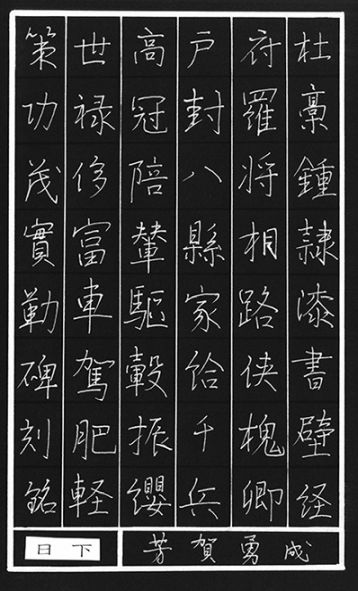 杜稾鍾隷漆書壁経
府羅将相路侠槐卿
戸封八縣家給千兵
高冠陪輦驅轂振纓
世禄侈富車駕肥軽
策功茂實勒碑刻銘
芳賀勇成
下日